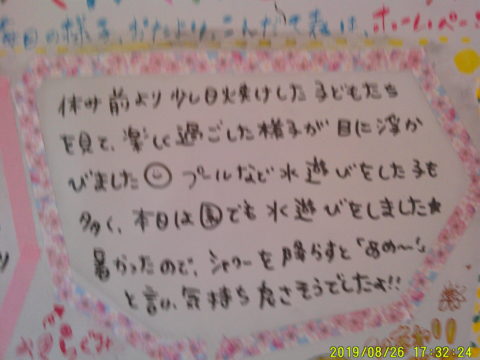 毎日の様子、おたより、こんだて表は、ホームページ
休み前より少し日焼けした子どもたち
を見て、楽しく過ごした様子が目に浮か
びました☺ プールなど水遊びをした子も
多く、本日は園でも水遊びをしました★
暑かったので、シャワーを降らすと「あめ〜」
と言い、気持ち良さそうでしたよ!!
2019/08/26 17:32:24